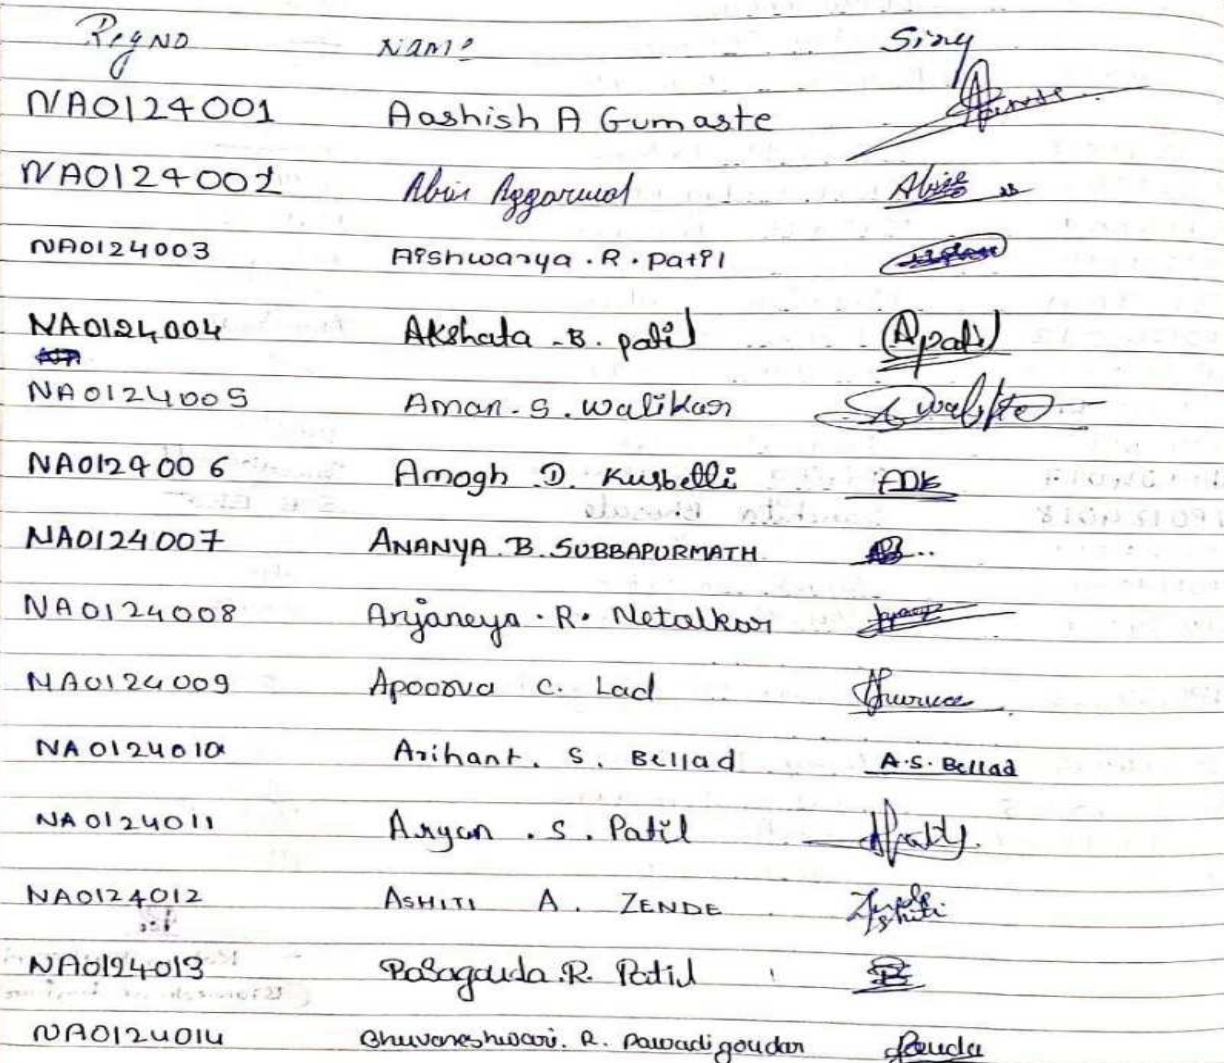 Reg NO Name Sing
NA0124001 Aashish A Gumaste
NA0124002 Abir Aggarwal Abir
NA0124003 Aishwarya . R . Patil
NA0124004 Akshata . B . patil Apatil
NA0124005 Aman . S . Walikar
NA0124006 Amogh D. Kusbelli ADK
NA0124007 ANANYA B. SUBBAPURMATH
NA0124008 Anjaneya . R. Netalkar
NA0124009 Apoorva C. Lad
NA0124010 Arihant . S . Bellad A.S. Bellad
NA0124011 Aryan . S . Patil
NA0124012 ASHITI A. ZENDE Zende
Ashiti
NA0124013 Basagouda .R. Patil
NA0124014 Bhuvaneshwari . R . Pawadigoudar